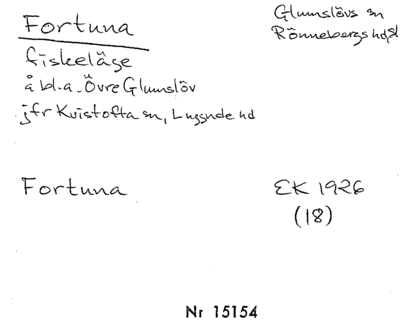 Fortuna
Glumslövs sn
Rönnebergs hd, Sk
fiskeläge
å bl.a. Övre Glumslöv
jfr Kvistofta sn, Luggude hd
Fortuna
EK 1926
(18)
Nr 15154